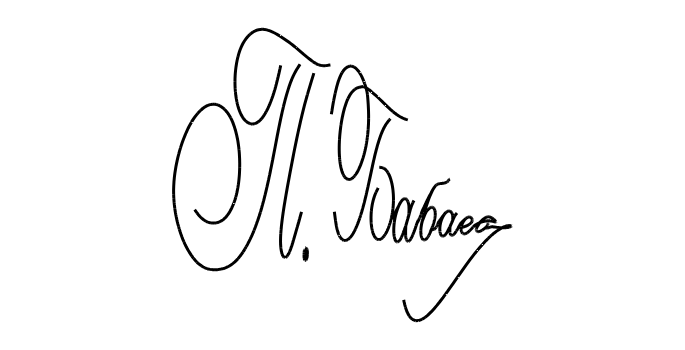 П. Бабаев